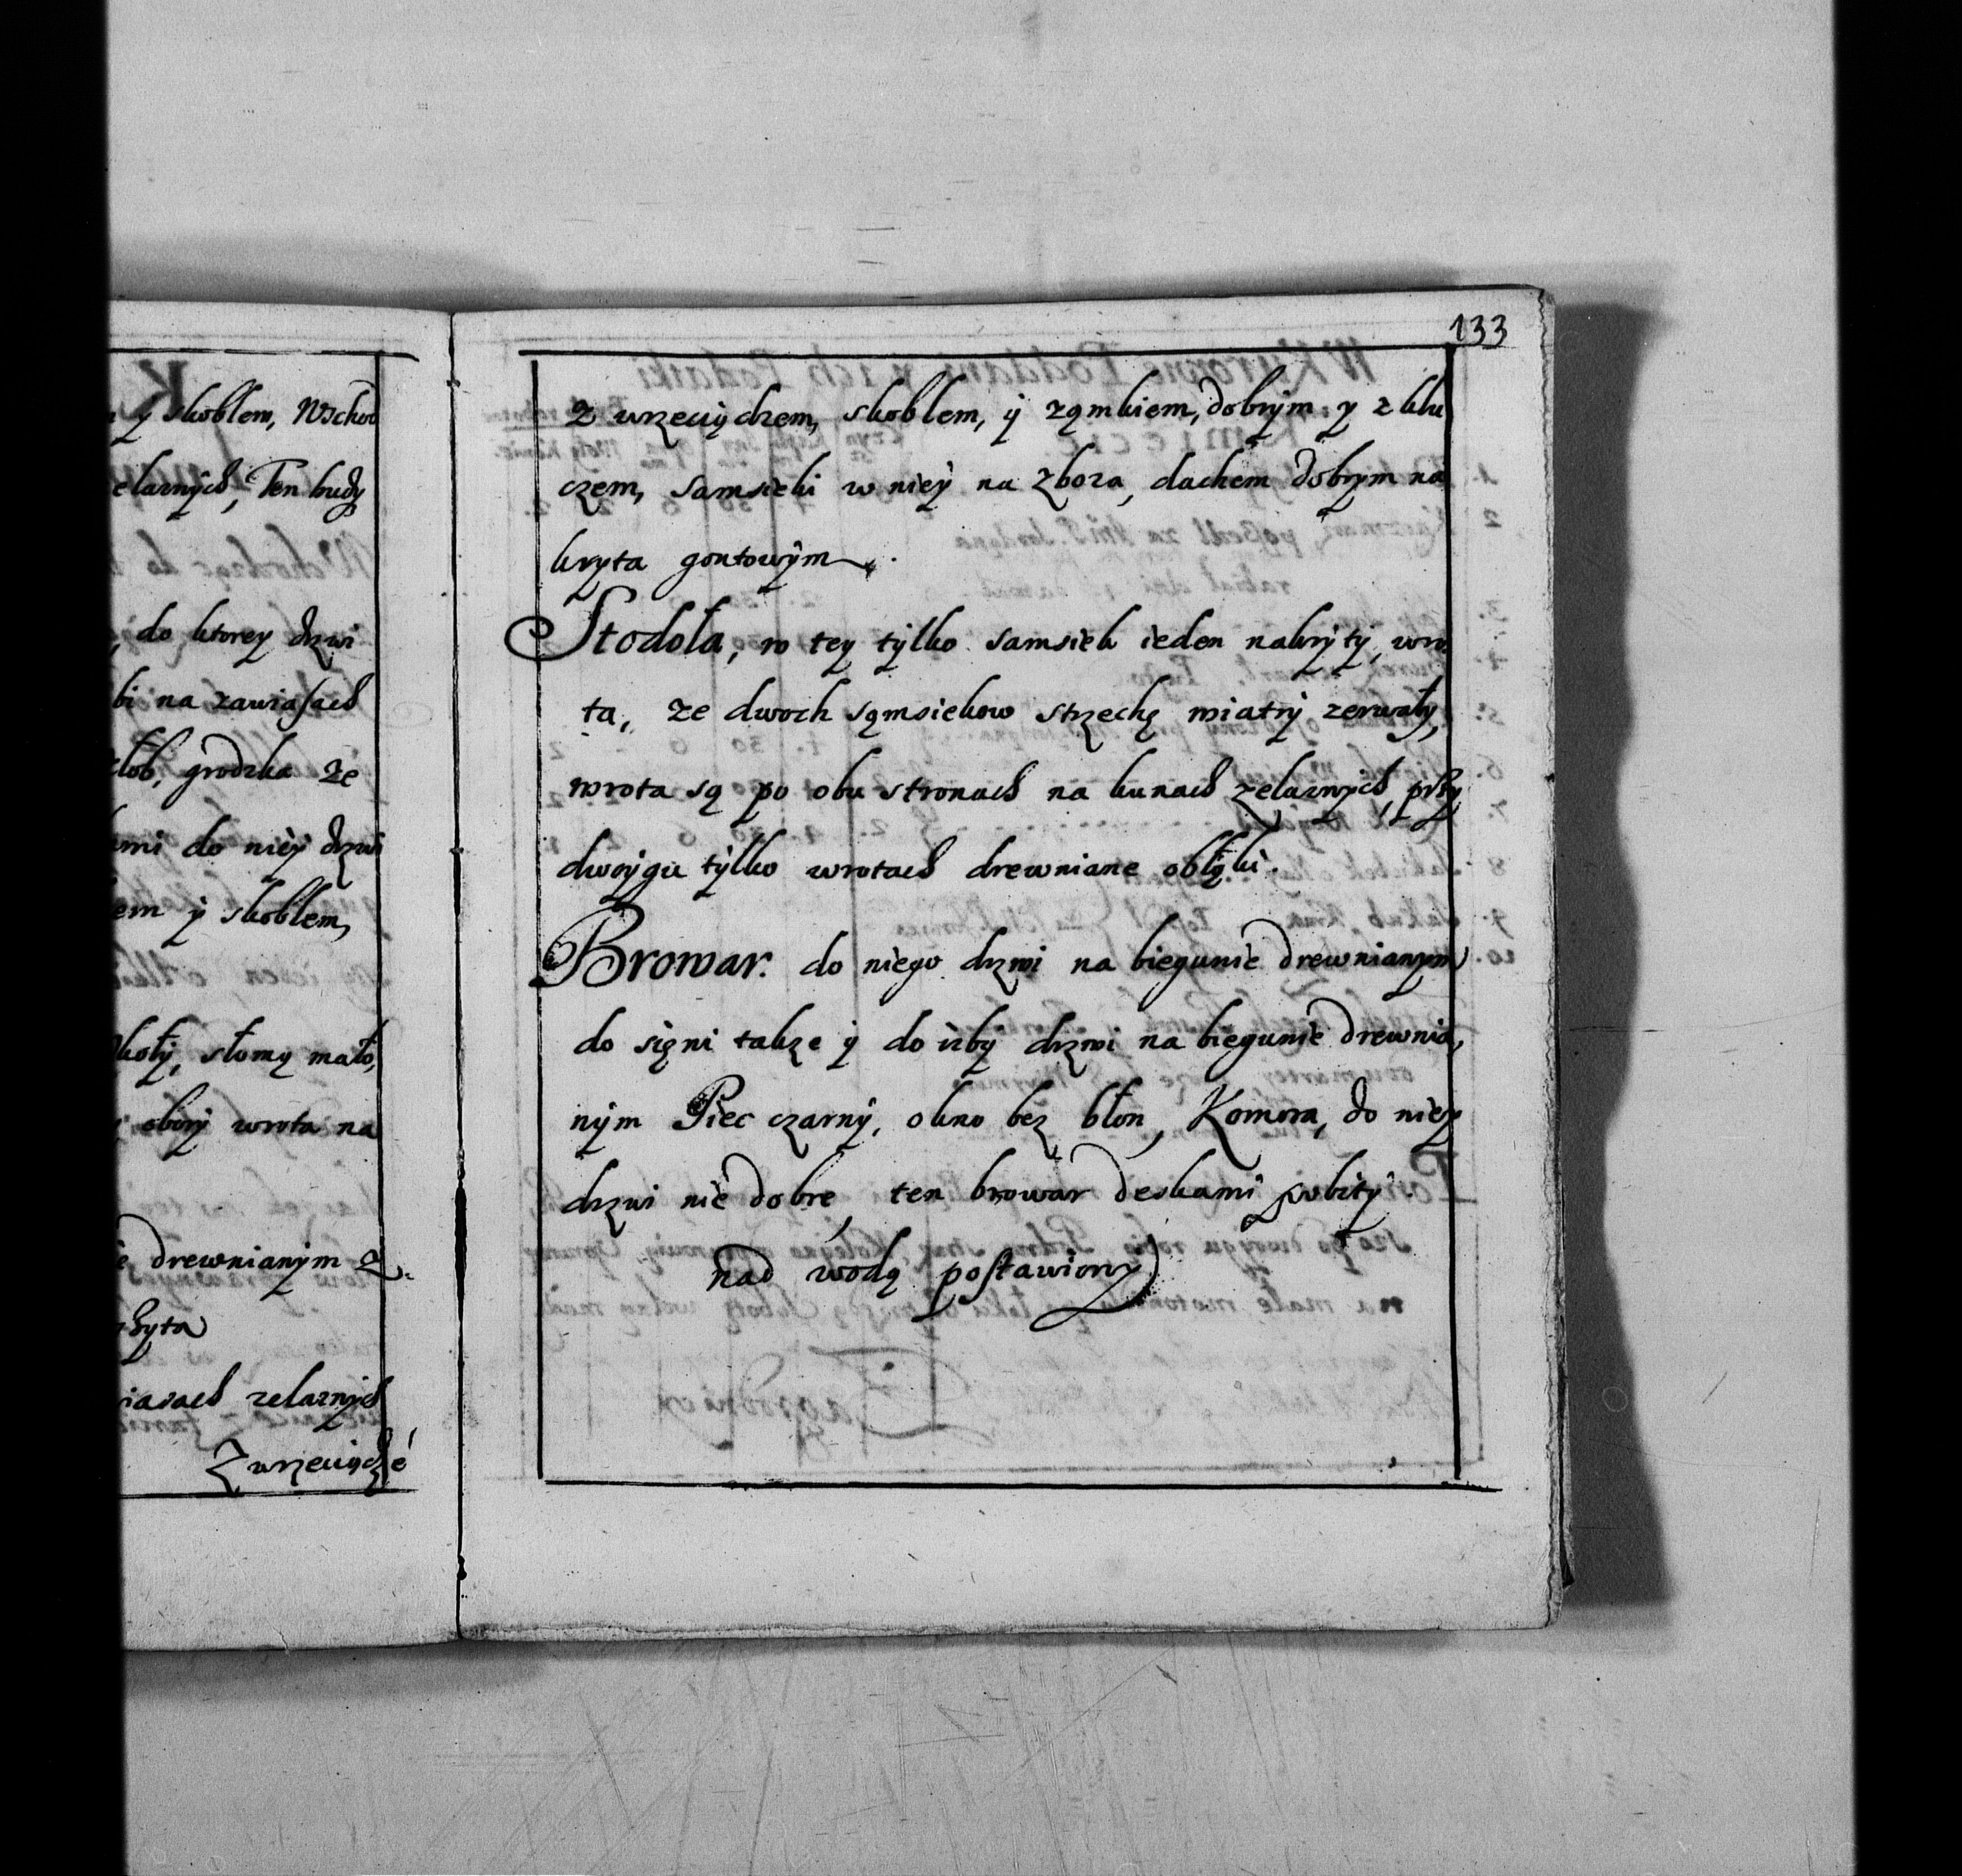 y skoblem, Wschod
elaznych, Ten budy
do ktorey drzwi
bi na zawiasach
złob, grodzka ze
ami do niey drzwi
em y skoblem,
słomy mało,
obory wrota na
drewnianym z
zyta
iasach zelaznych
Z wrzeciądzé
133
z wrzeciądzem, skoblem, y ząmkiem, dobrym y z klu
czem, Samsieki w niey na zboza, dachem dobrym na
kryta gontowym.
Stodola, w tey tylko samsiek ieden nakryty, wro
ta, ze dwoch sąmsiekow strzechę wiatry zerwały,
wrota są po obu stronach na kunach zelaznych, przy
dwoygu tylko wrotach drewniane obłąki.
Browar. do niego drzwi na biegunie drewnianym
do sięni takze y do izby drzwi na biegunie drewnia,
nym Piec czarny, okno bez błon, Komora, do niey
drzwi nie dobre, ten browar deskami pobity.
nad wodą postawiony